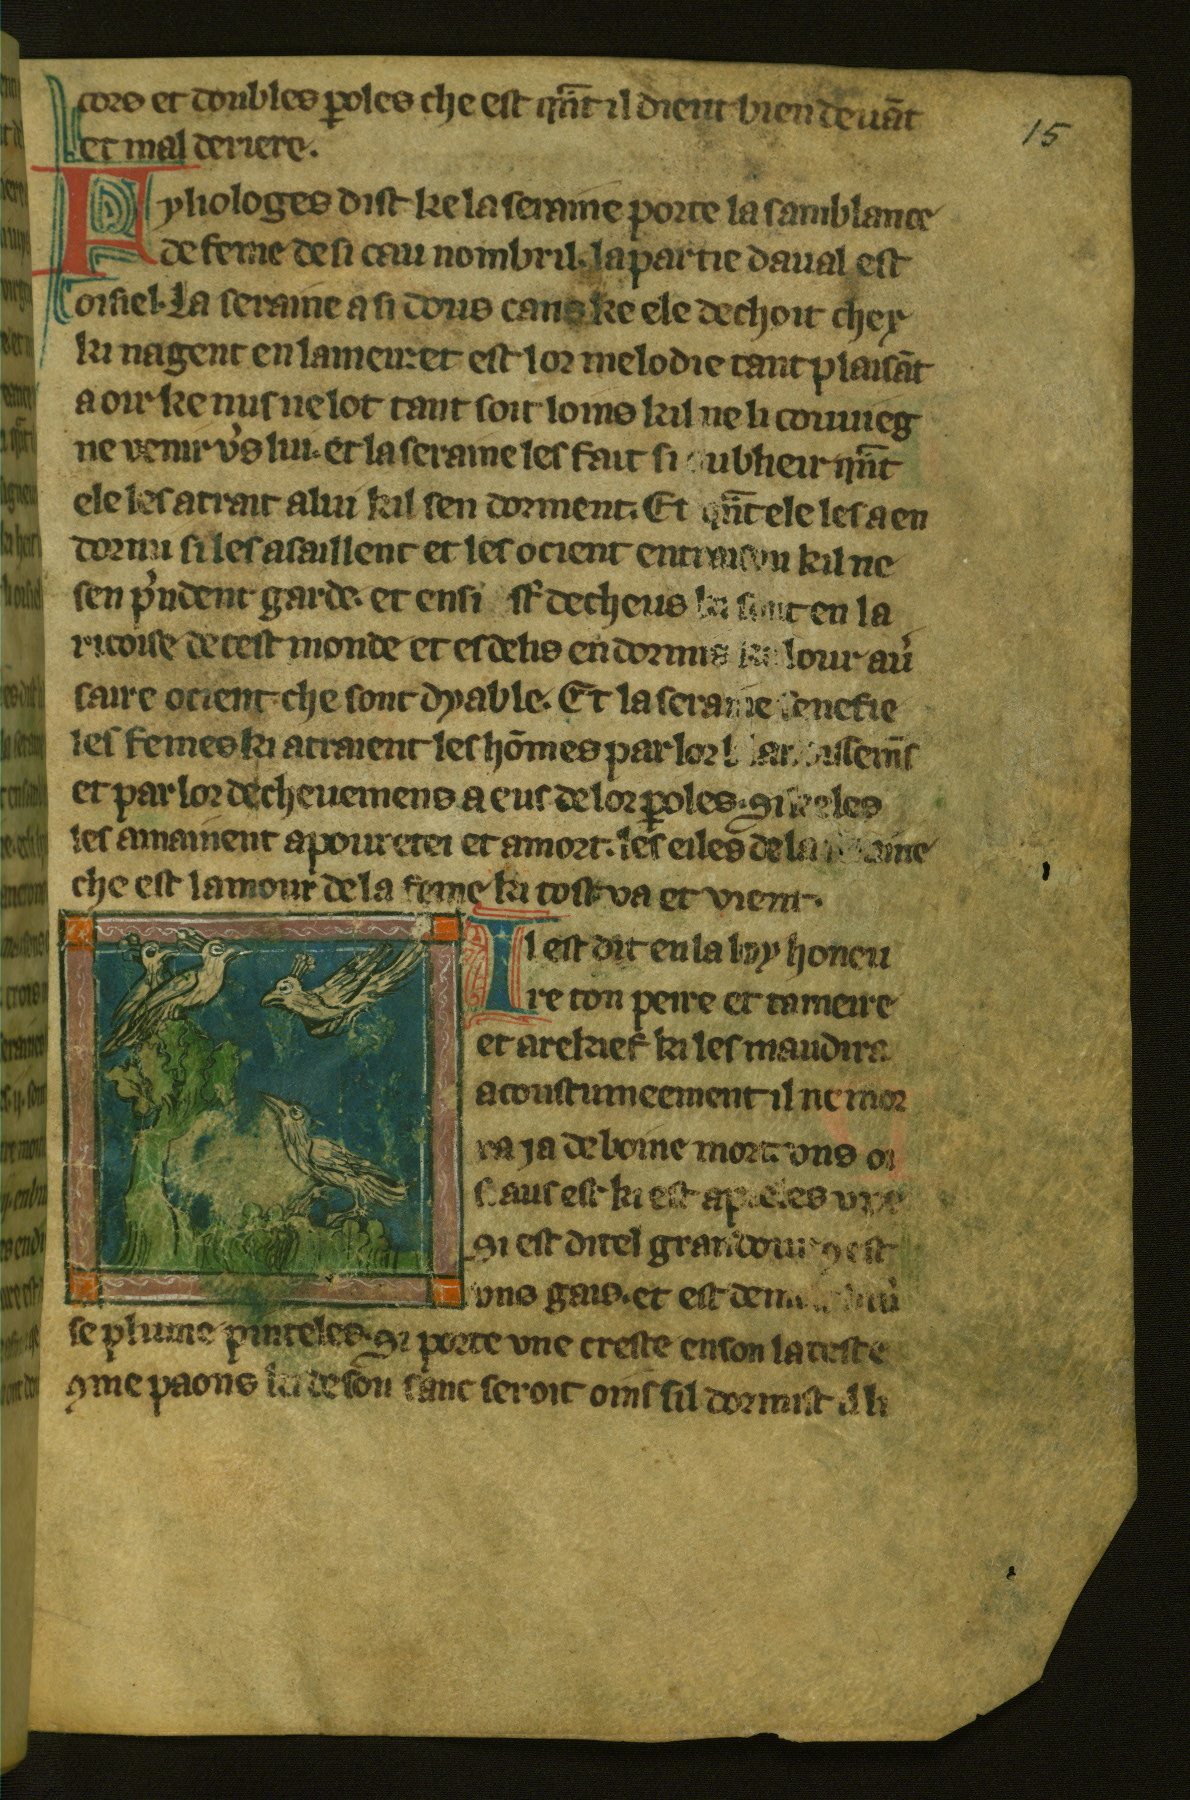 cors et doubles ꝑoles che est qn̄t il dient bien deuāt
15
et mal deriere.
Phyliologes dist ke la seraine porte la samblance
de feme desi cau nombril. la partie daual est
oisiel. La seraine a si dous cans ke ele dechoit chex
ki nagent en la meir. et est lor melodie tant plaisāt
a oir ke nus ne lot tant soit loins kil ne li couuieg
ne venir vs̄ lui. et la seraine les fait si oubheir qn̄t
ele les atrait a lui kil sen dorment. Et qn̄t ele les a en
dormi si les asaillent et les ocient entraison kil ne
sen pͥndent garde. et ensi st̄ decheus ki sunt en la
ricoise de cest monde et es delis endormis ki lour au̾
saire ocient che sont dyable. Et la seraine senefie
les femes ki atraient les hōmes par lor
et par lor dechevemens a eus de lor ꝑoles. Si keles
les amainent a pouretei et a mort. les eiles de la seraine
che est lamour de la feme ki tost va et vient.
Il est dit en la loy honeu
re ton peire et ta meire
et arekief ki les maudira
acoustumeement il ne mor
ra ja de boine mort. vns oi
siaus est ki est apeles
Si est ditel grandour 9 est
vns gais. et est de
se plume pinteles. Si porte vne creste enson la teste
9me paons ki de son sanc seroit oins sil dormist d li